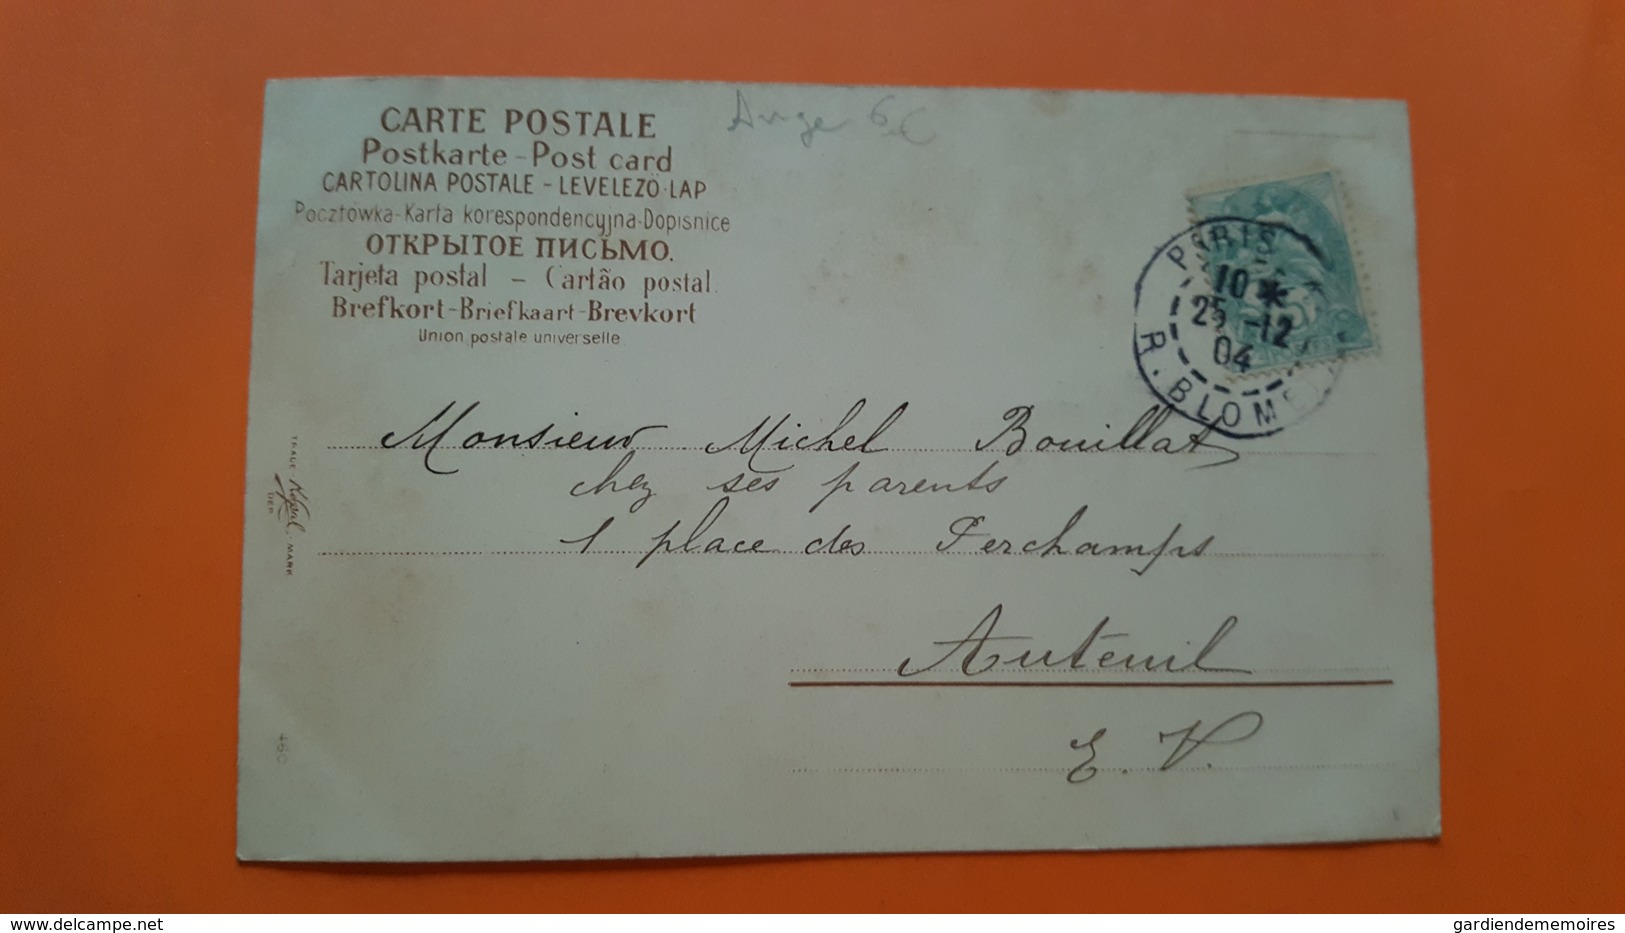 CARTE POSTALE
Postkarte - Post card
CARTOLINA POSTALE - LEVELEZÖ-LAP
Pocztówka-Karta korespondencyjna-Dopisnice
ОТКРЫТОЕ ПИСЬМО.
Tarjeta postal - Cartão postal.
Brefkort-Briefkaart-Brevkort
Union postale universelle
Ange 6€
PARIS
10 *
25 -12
04
R. BLOME
Monsieur Michel Bouillat
chez ses parents
1 place des Perchamps
Auteuil
E. V.
TRADE MARK
DEP.
460
delcampe.net
gardiendememoires